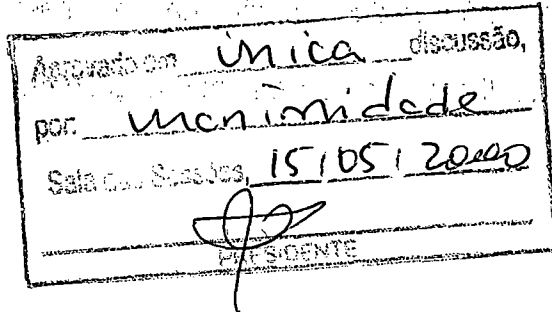 Aprovado em única discussão,
por: unanimidade
Sala das Sessões, 15/05/2000
PRESIDENTE